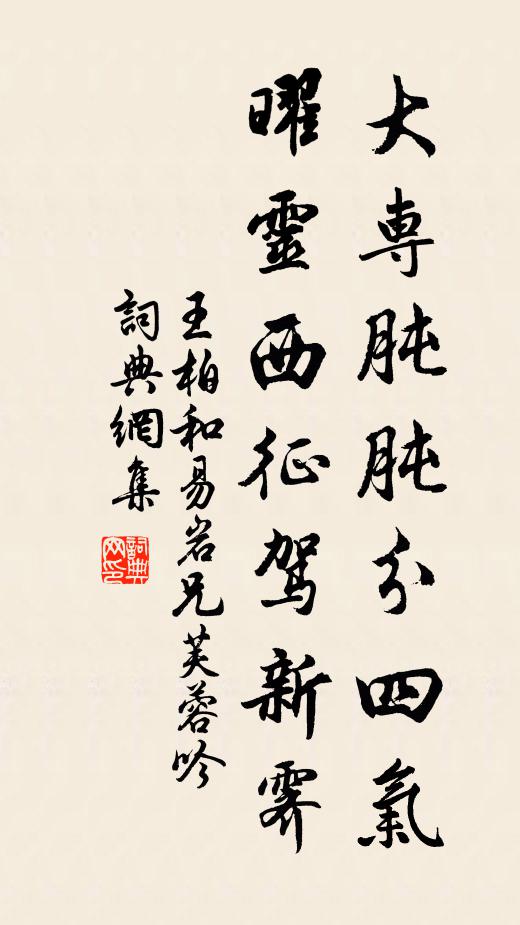 大専肫肫分四氣
曜靈西征駕新霽
王柏和易岩兄芙蓉吟
詞典網集
詞典網印